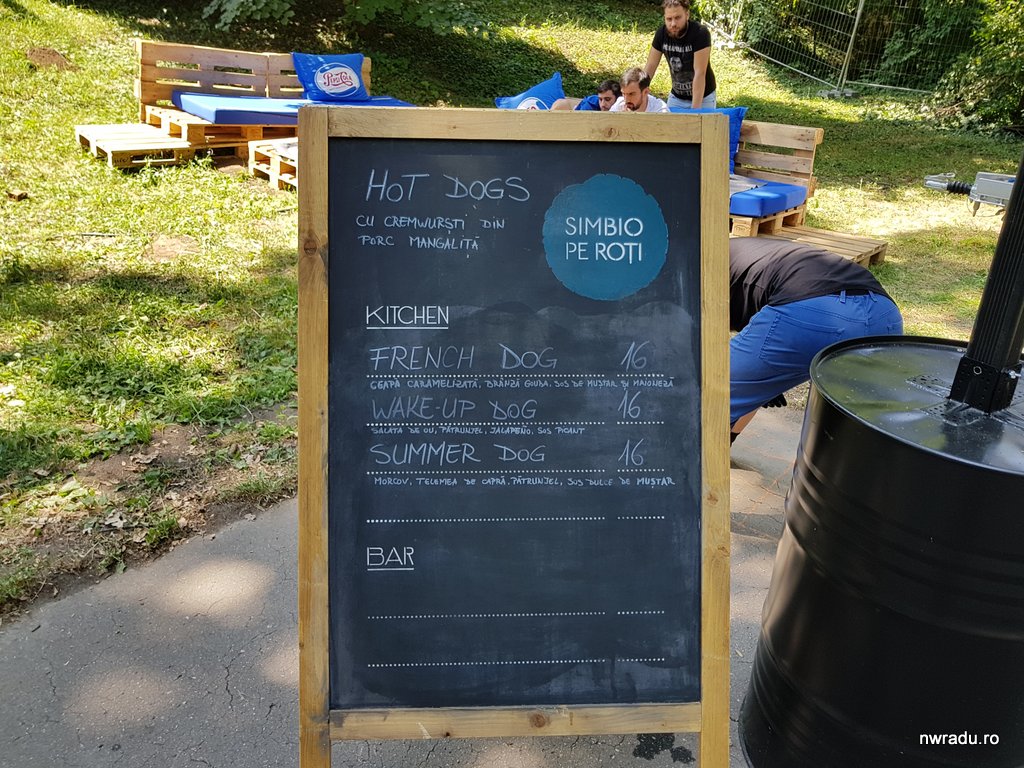 PEPSI-COLA
HOT DOGS
CU CREMWURȘTI DIN
PORC MANGALIȚĂ
SIMBIO
PE ROȚI
KITCHEN
FRENCH DOG 16
CEAPĂ CARAMELIZATĂ, BRÂNZĂ GOUDA, SOS DE MUȘTAR ȘI MAIONEZĂ
WAKE-UP DOG 16
SALATĂ DE OU, PĂTRUNJEL, JALAPEÑO, SOS PICANT
SUMMER DOG 16
MORCOV, TELEMEA DE CAPRĂ, PĂTRUNJEL, SOS DULCE DE MUȘTAR
BAR
nwradu.ro